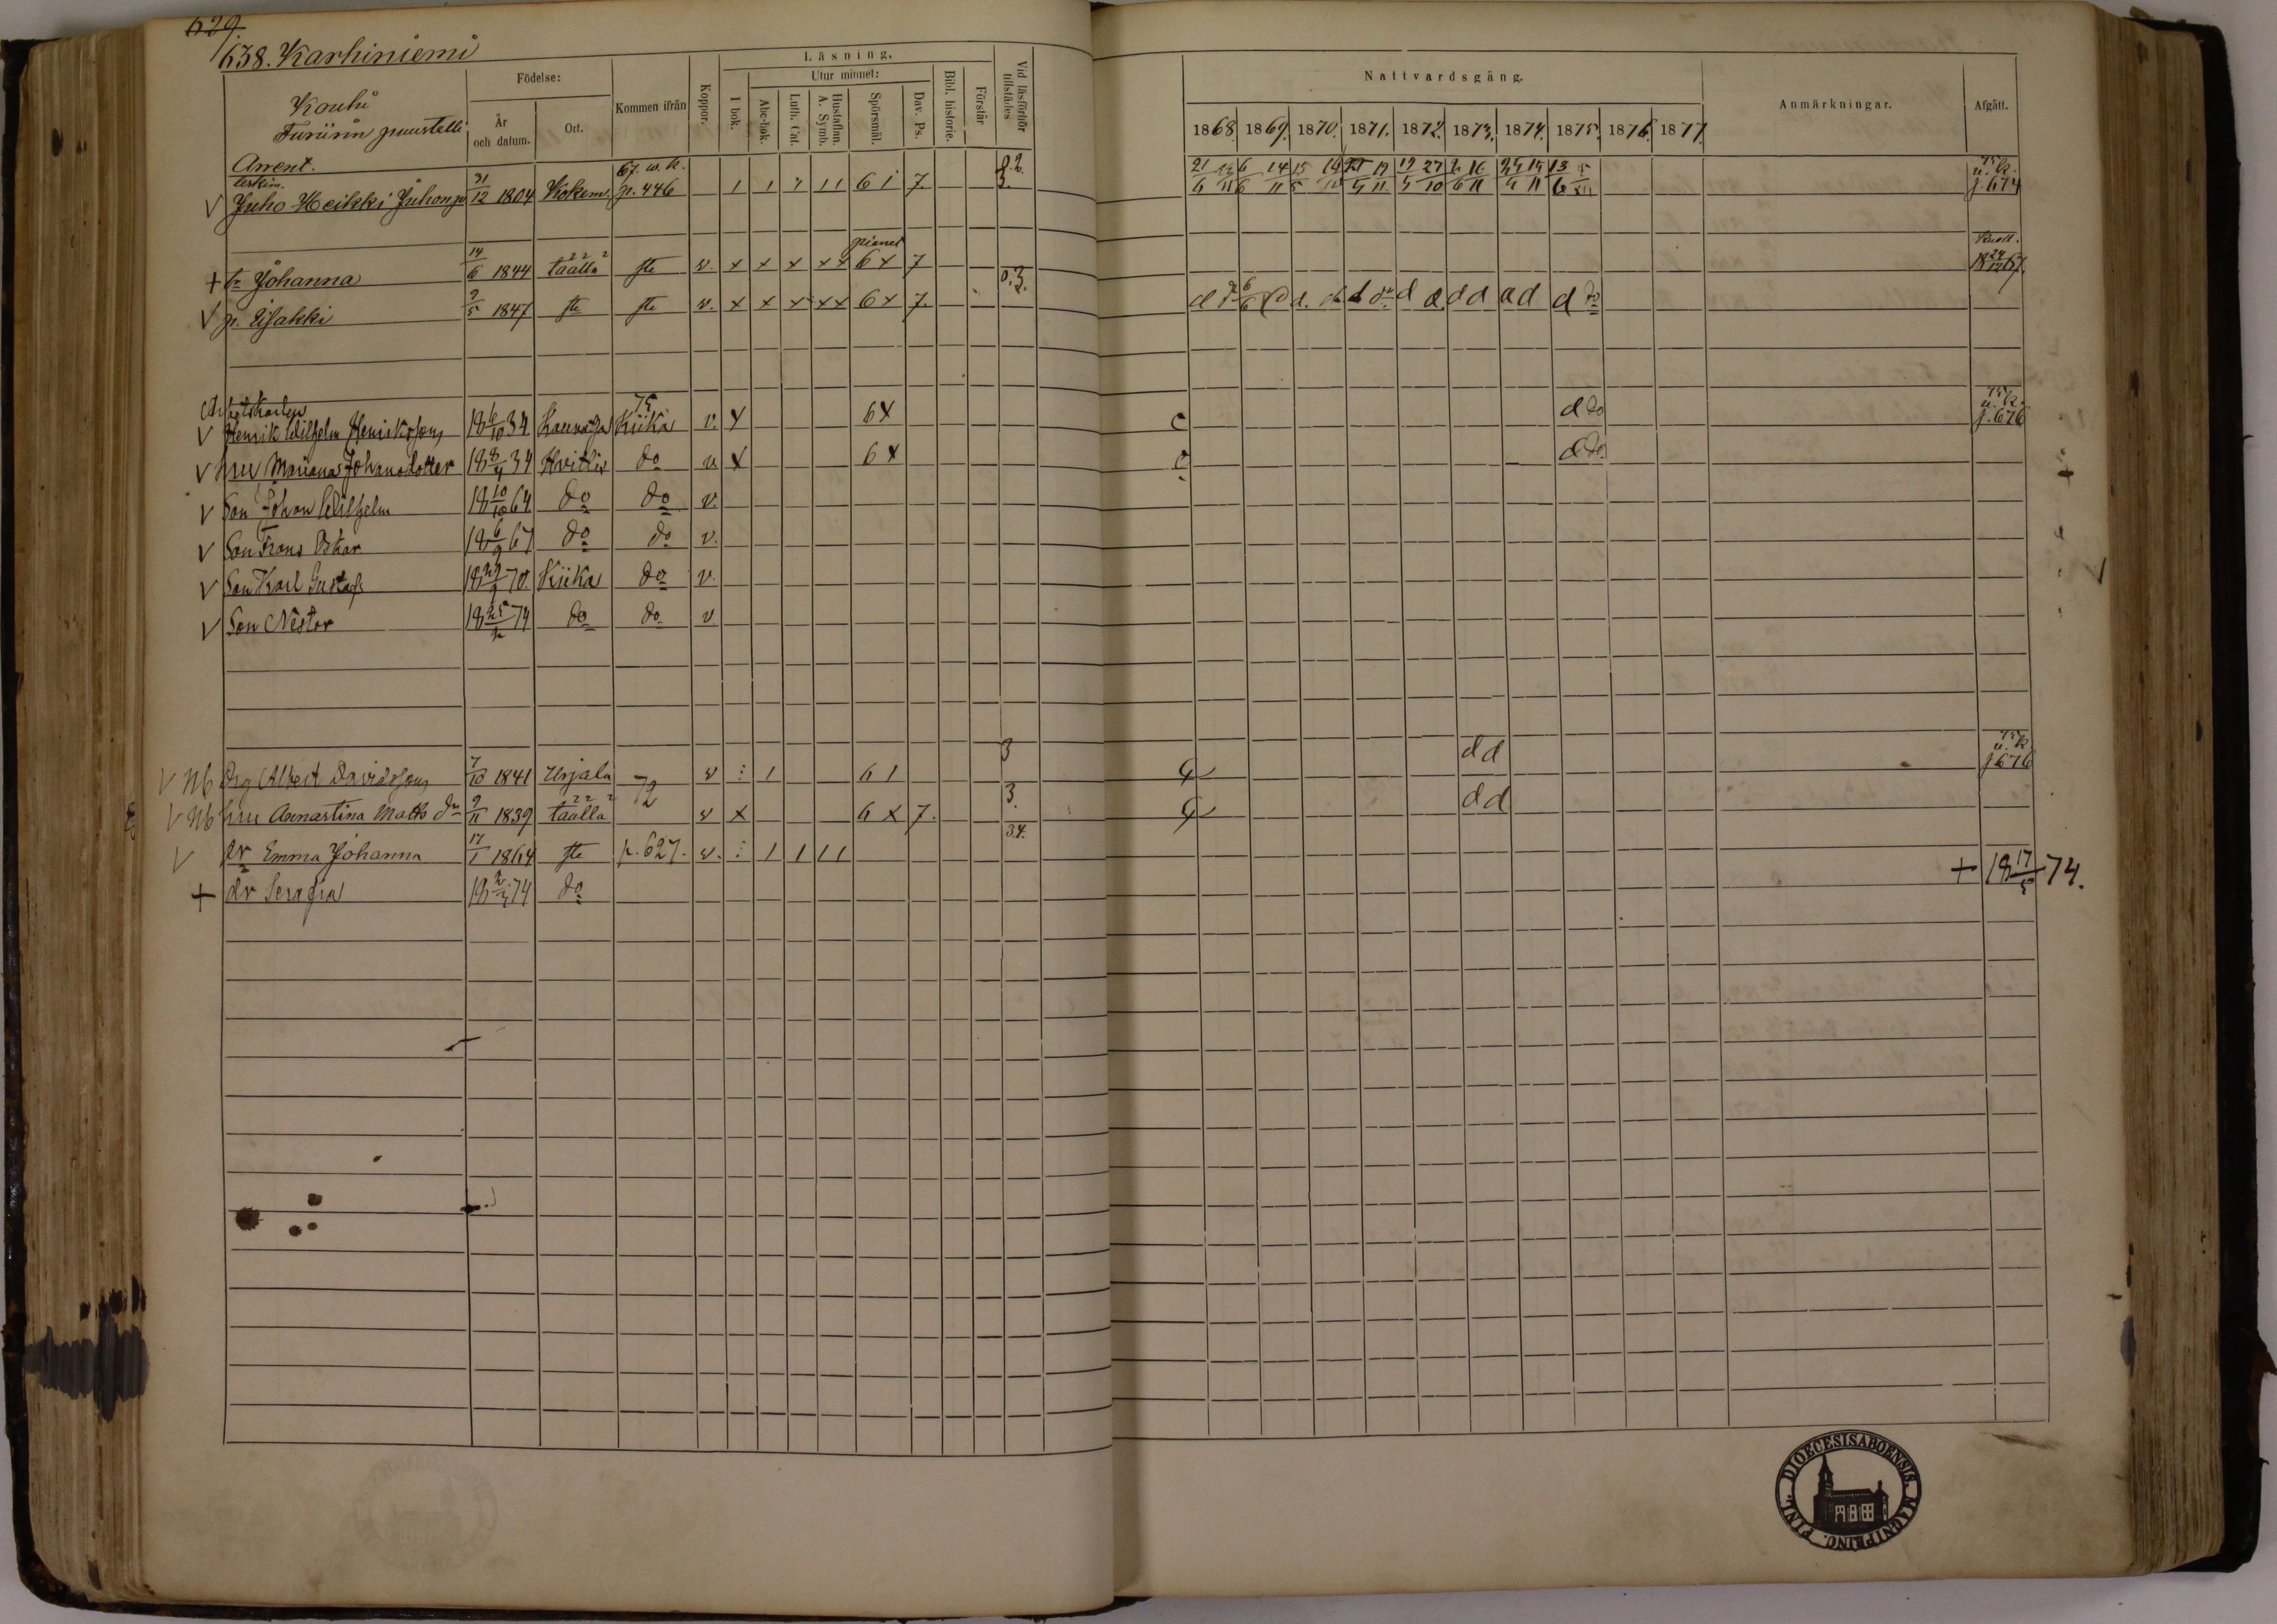 629.
638. Karhiniemi
Kouhi
Furiirin puustelli
Födelse:
År och datum.
Ort.
Kommen ifrån
Koppor.
Läsning.
I bok.
Utur minnet:
Abc-bok.
Luth. Cat.
Hustaflan. A. Symb.
Spörsmål.
Dav. Ps.
Bibl. historie.
Förstår
Vid läsförhör tillstädes
Nattvardsgång.
1868. 1869. 1870. 1871. 1872. 1873. 1874. 1875. 1876. 1877.
Anmärkningar.
Afgått.
Arrent.
leskim. 67. w. k.
V Juho Heikki Juhonp 31/12 1804 Kokem. p. 446 1 1 1 1 1 6 1 7 u. k. p. 674
+ tr Johanna 14/6 1844 täällä ste v. x x x x x 6 x 7 Kuoll. 18 24/12 67.
V p. Iisakki 9/5 1847 ste ste v. x x x x x 6 x 7. d d d d d d d d
Arbetskarlen 75
V Henrik Wilhelm Henriksson 18 6/10 34 Kiika v. x 6 x c d do u. k. p. 676
V hru Mariana Johansdotter 18 8/4 34 Hvittis do v x 6 x c d do
V Son Johan Wilhelm 18 10/10 64 do do v.
V Son Frans Oskar 18 6/9 67 do do v.
V Son Karl Gustaf 18 29/9 70. Kiika do v.
V Son Nestor 18 25/2 74 do do v
V Nb Drg Albert Davidsson 7/10 1841 Urjala 72 v 1 6 1 3 d d u. k. p 676
V Nb hru Annastina Matts dr 9/11 1839 täällä v x 6 x 7. 3. d d
V dr Emma Johanna 17/1 1864 ste p. 627. v. 1 1 1 1 3.4.
+ dr Serafia 18 2/3 74 do + 18 17/5 74.
DIOECESIS ABOENSIS. MAGNI PRINC. FINL.